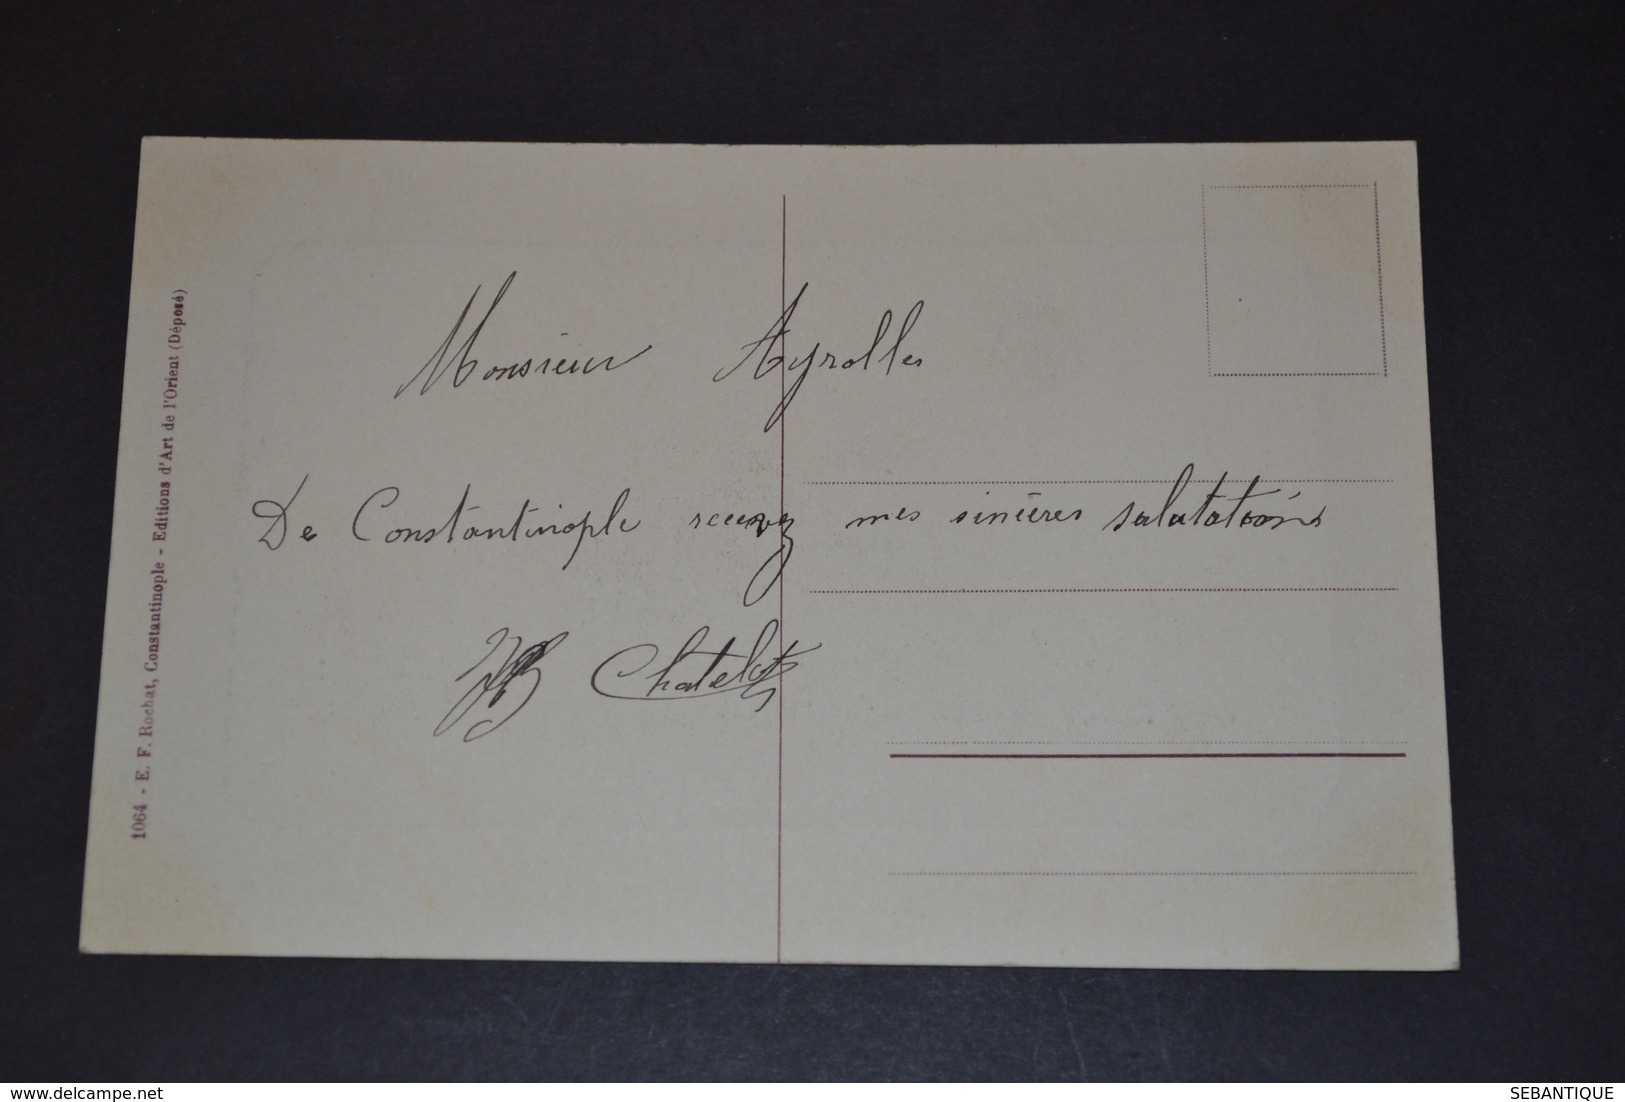 Monsieur Ayrolles
De Constantinople recevez mes sincères salutations
Chatelot
1064 - E. F. Rochat, Constantinople - Editions d'Art de l'Orient (Déposé)
delcampe.net
SEBANTIQUE